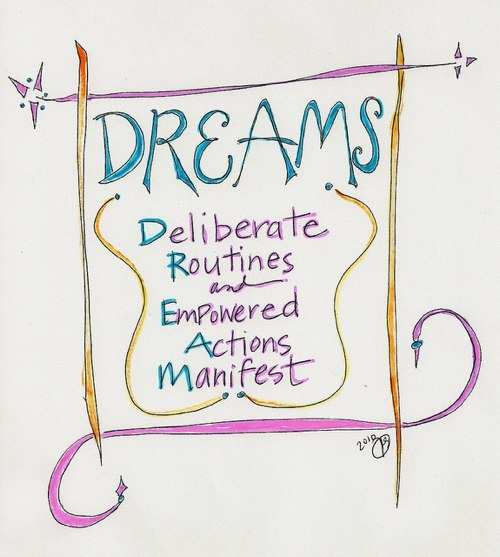 DREAMS
Deliberate
Routines
and
Empowered
Actions
Manifest